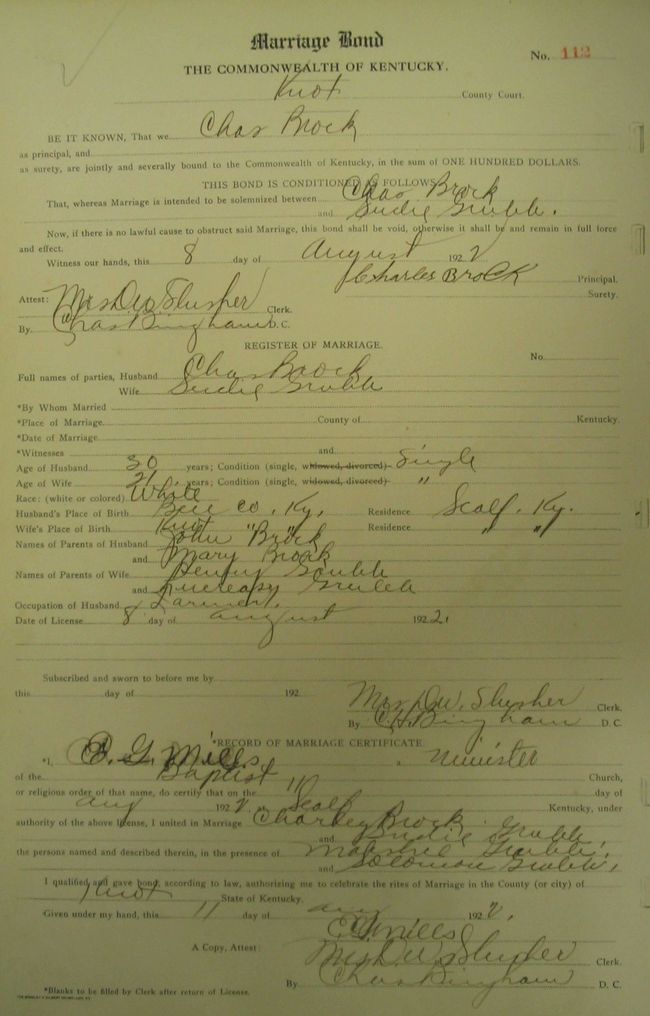 Marriage Bond
No. 112
THE COMMONWEALTH OF KENTUCKY.
Knox County Court.
BE IT KNOWN, That we Chas Brock
as principal, and
as surety, are jointly and severally bound to the Commonwealth of Kentucky, in the sum of ONE HUNDRED DOLLARS.
THIS BOND IS CONDITIONED AS FOLLOWS:
That, whereas Marriage is intended to be solemnized between Chas Brock
and Sudie Grubb.
Now, if there is no lawful cause to obstruct said Marriage, this bond shall be void, otherwise it shall be and remain in full force
and effect.
Witness our hands, this 8 day of August 1922
Charles Brock Principal.
Surety.
Attest: Mrs D W Slusher Clerk.
By Chas Bingham D.C.
REGISTER OF MARRIAGE.
No.
Full names of parties, Husband Chas Brock
Wife Sudie Grubb
*By Whom Married
*Place of Marriage County of Kentucky.
*Date of Marriage
*Witnesses and
Age of Husband 30 years; Condition (single, widowed, divorced) Single
Age of Wife 21 years; Condition (single, widowed, divorced) "
Race: (white or colored) White
Husband's Place of Birth Bell co. Ky. Residence Scalf, Ky.
Wife's Place of Birth Knox " " Residence " "
Names of Parents of Husband John Brock
and Mary Brock
Names of Parents of Wife Grubb
and Grubb
Occupation of Husband Farmer.
Date of License 8 day of August 1922.
Subscribed and sworn to before me by
this day of 192
Mrs D.W. Slusher Clerk.
By C.H. Bingham D. C.
*RECORD OF MARRIAGE CERTIFICATE
*I, E. G. Mills a Minister
of the Baptist Church,
or religious order of that name, do certify that on the 11 day of
Aug 1922, Scalf Kentucky, under
authority of the above license, I united in Marriage Charley Brock
and Sudie Grubb
the persons named and described therein, in the presence of Grubb,
and Solomon Grubb,
I qualified and gave bond, according to law, authorizing me to celebrate the rites of Marriage in the County (or city) of
Knox State of Kentucky.
Given under my hand, this 11 day of Aug 1922.
E G Mills
A Copy, Attest: Mrs D W Slusher Clerk.
By Chas Bingham D. C.
*Blanks to be filled by Clerk after return of License.